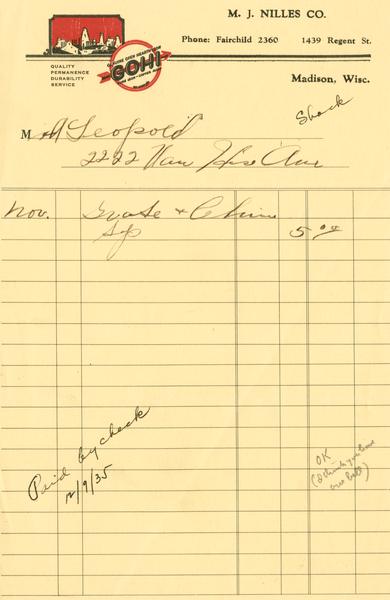 M. J. NILLES CO.
Phone: Fairchild 2360 1439 Regent St.
GOHI
QUALITY
PERMANENCE
DURABILITY
SERVICE
Madison, Wisc.
Shack
M A Leopold
2222 Van Hise Ave
Nov. Grate +
5 00
Paid by check
12/9/35
OK
(I think you have